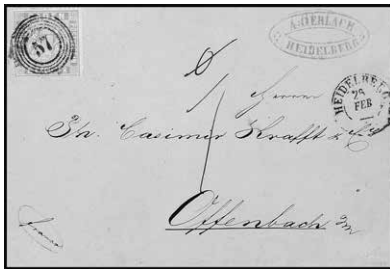 57
A. GERLACH
HEIDELBERG
HEIDELBERG
26
FEB
Herrn
Ph. Casimir Krafft & Co
Offenbach a/m
franco